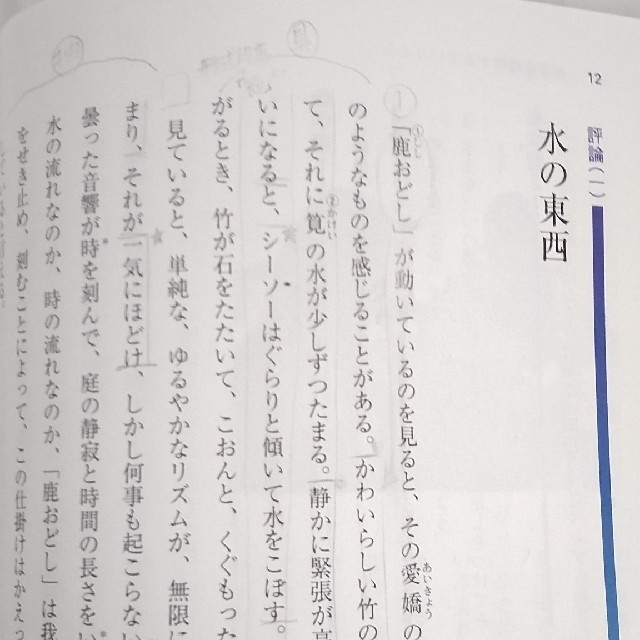 12
評論(一)
水の東西
「鹿おどし」が動いているのを見ると、その愛嬌の
のようなものを感じることがある。かわいらしい竹の
て、それに筧の水が少しずつたまる。静かに緊張が高
いになると、シーソーはぐらりと傾いて水をこぼす。
がるとき、竹が石をたたいて、こおんと、くぐもった
見ていると、単純な、ゆるやかなリズムが、無限に
まり、それが一気にほどけ、しかし何事も起こらない
曇った音響が時を刻んで、庭の静寂と時間の長さをい
水の流れなのか、時の流れなのか、「鹿おどし」は我
をせき止め、刻むことによって、この仕掛けはかえっ